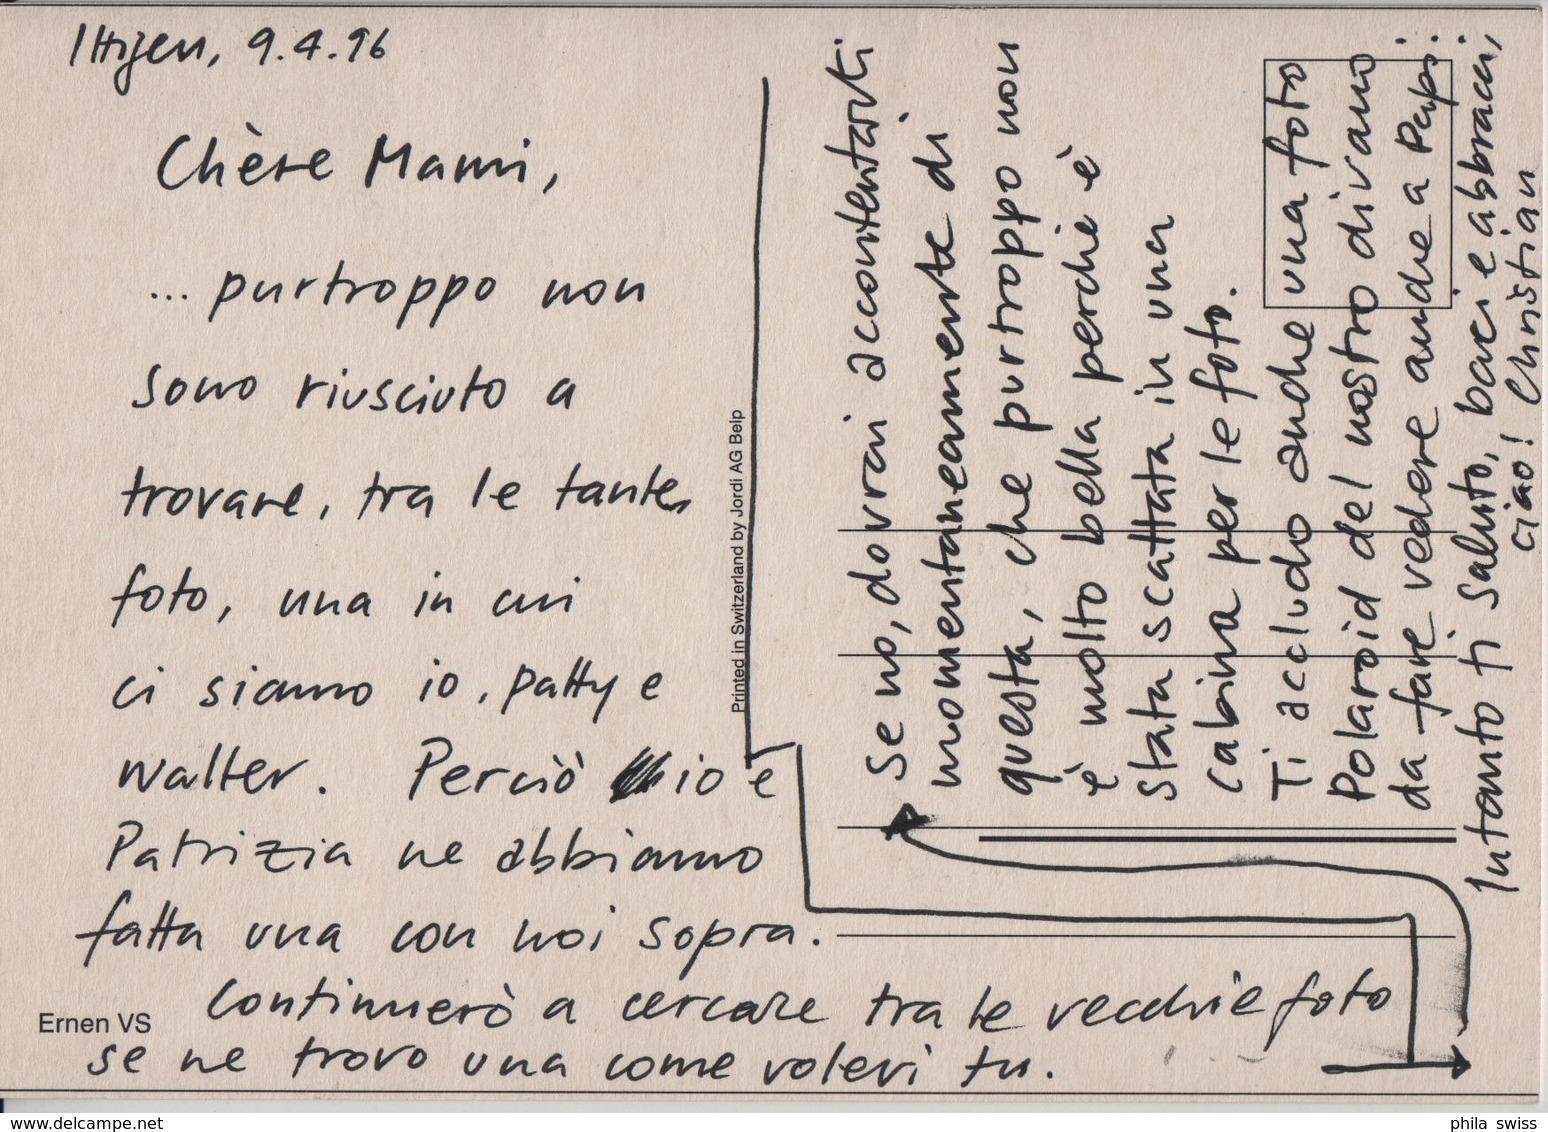 Ittigen, 9.4.96
Chère Mami,
... purtroppo non
sono riusciuto a
trovare, tra le tante
foto, una in cui
ci siamo io, Patty e
Walter. Perciò io e
Patrizia ne abbiamo
fatta una con noi sopra.
Continuerò a cercare tra le vecchie foto
se ne trovo una come volevi tu.
Se no, dovrai accontentarti
momentaneamente di
questa, che purtroppo non
è molto bella perchè è
stata scattata in una
cabina per le foto.
Ti accludo anche una foto
Polaroid del nostro divano
da fare vedere anche a Papi.
Intanto ti saluto, baci e abbracci,
ciao! Christian
Printed in Switzerland by Jordi AG Belp
Ernen VS
phila swiss
www.delcampe.net